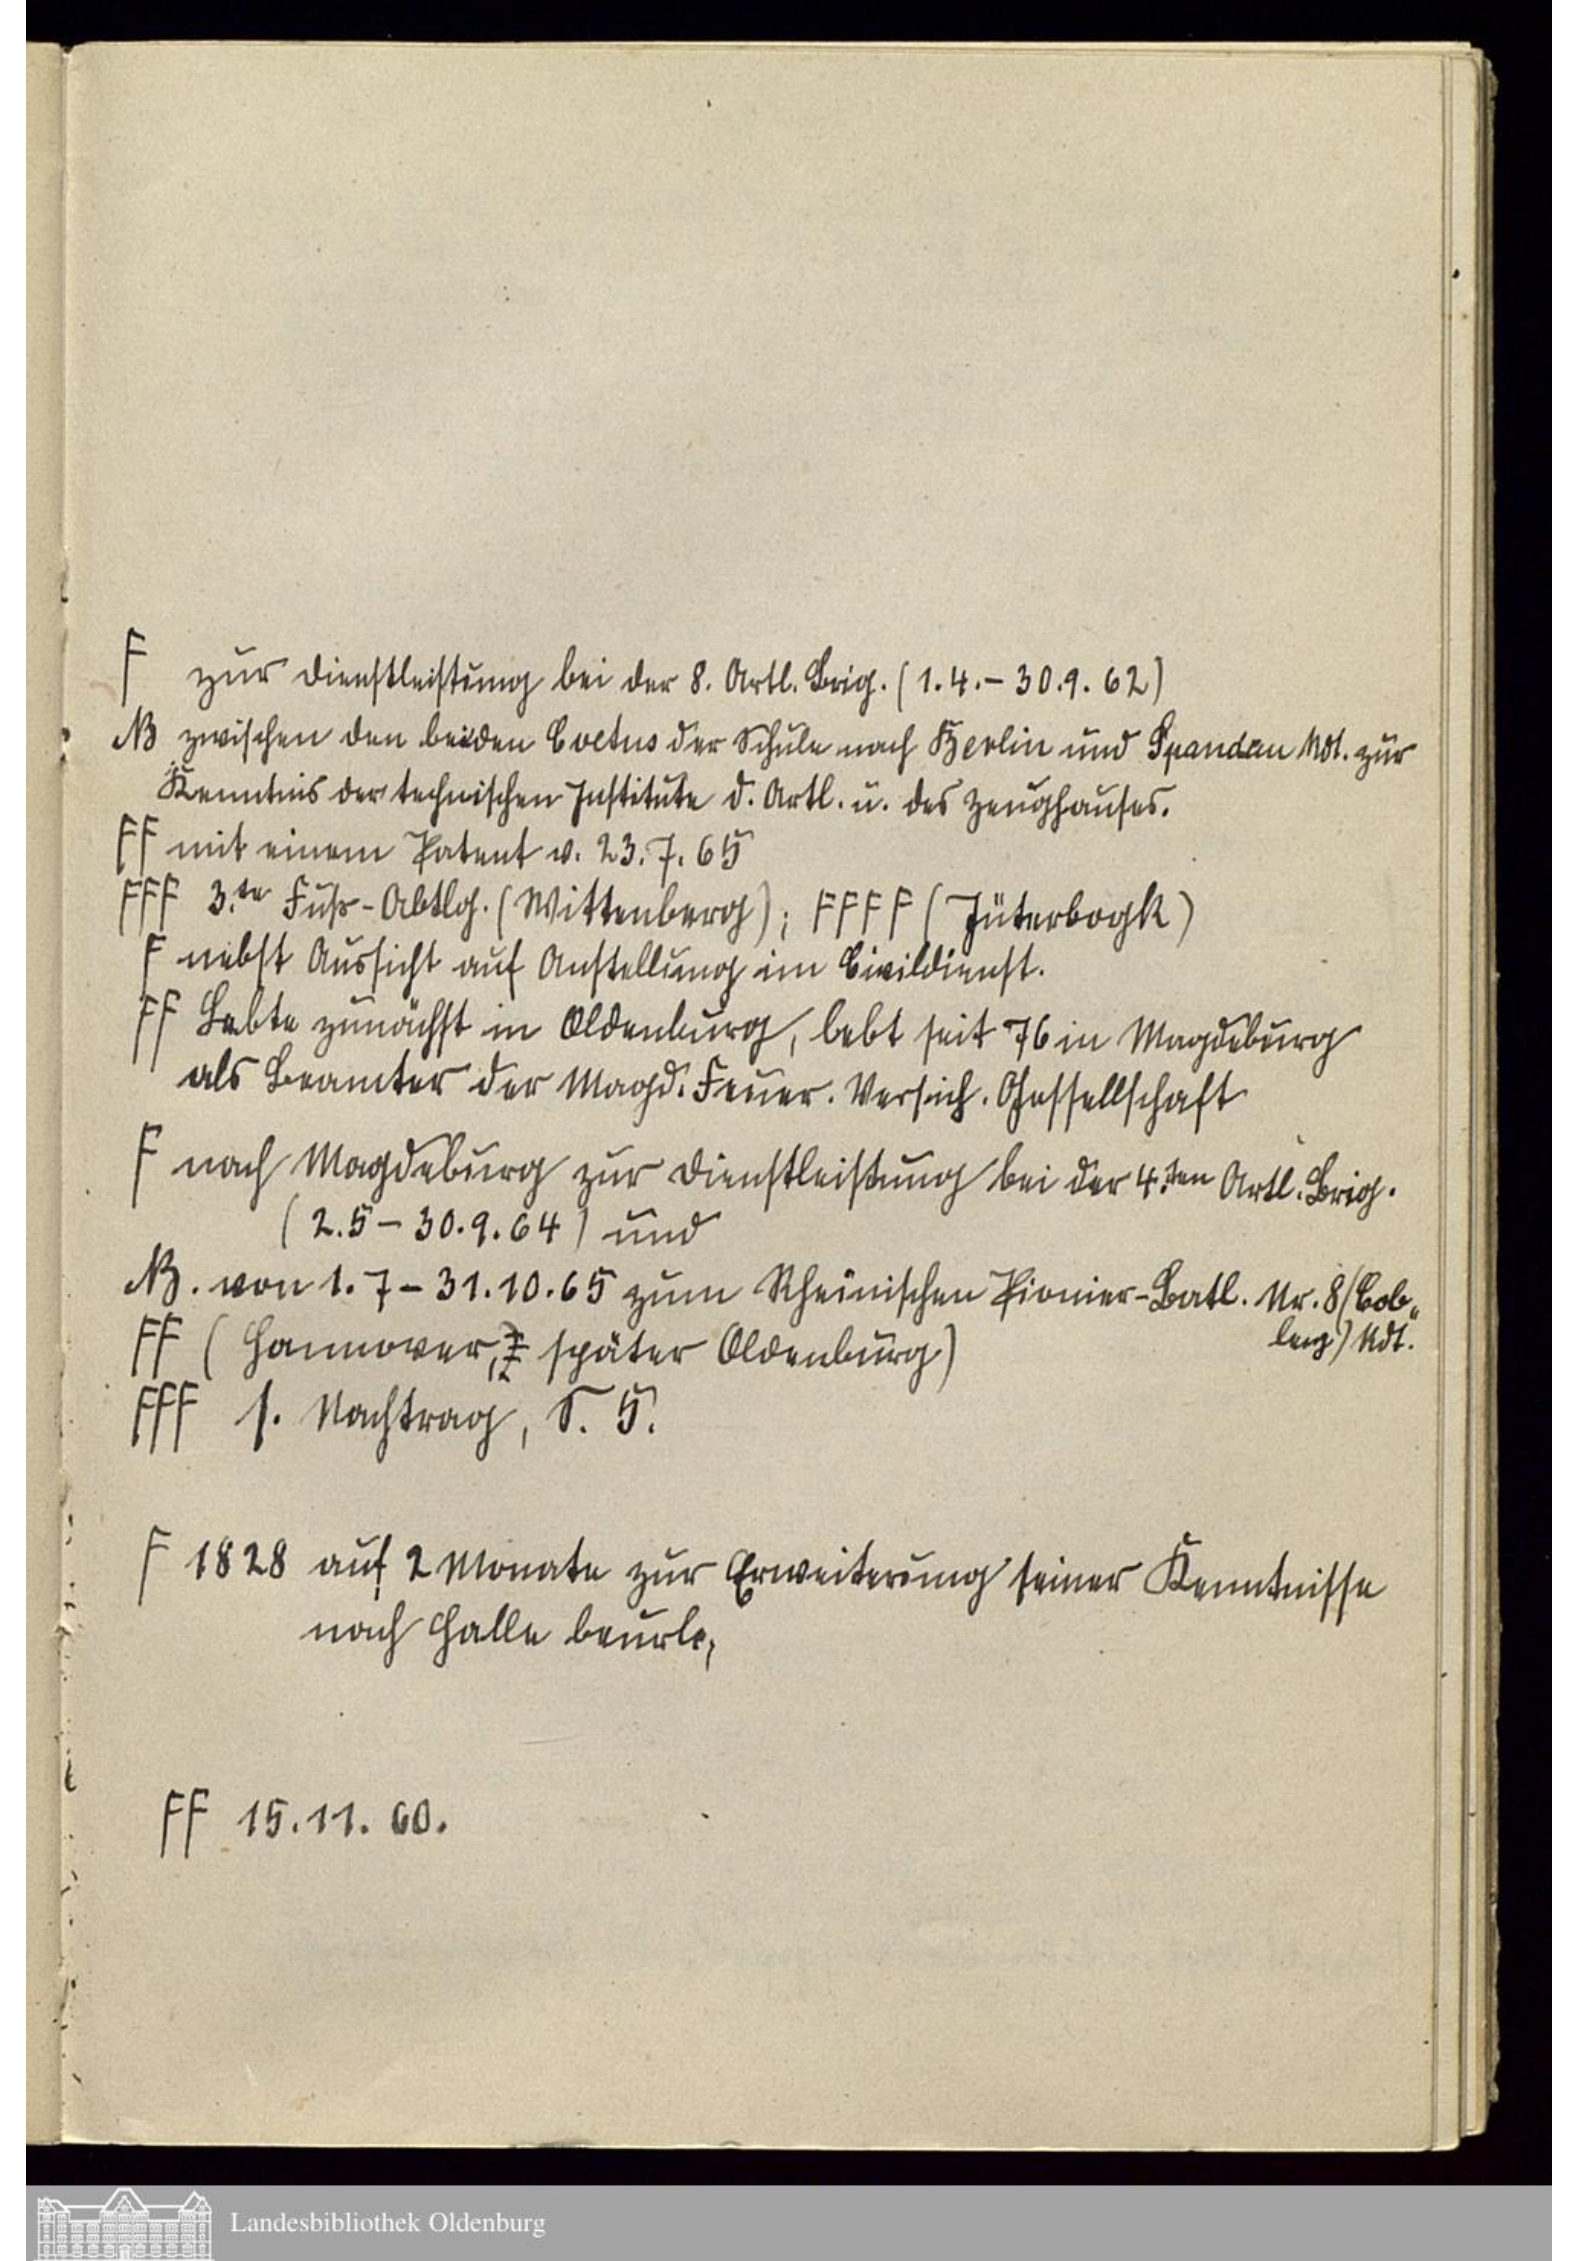 F zur Dienstleistung bei der 8. Artl. Brig. (1.4.– 30.9.62)
NB zwischen den beiden Coetus der Schule nach Berlin und Spandau kdt. zur
Kenntnis der technischen Institute d. Artl. u. des Zeughauses.
FF mit einem Patent v. 23.7.65
FFF 3.te Fuß-Abtlg. (Wittenberg); FFFF (Jüterbogk)
F nebst Aussicht auf Anstellung im Civildienst.
FF Lebte zunächst in Oldenburg, lebt seit 76 in Magdeburg
als Beamter der Magd. Feuer. Versich. Gesellschaft
F nach Magdeburg zur Dienstleistung bei der 4.ten Artl. Brig.
(2.5 – 30.9.64) und
NB. von 1.7 – 31.10.65 zum Rheinischen Pionier-Batl. Nr. 8 (Cob„
lenz) kdt.
FF (Hannover, später Oldenburg)
FFF s. Nachtrag, S. 5.
F 1828 auf 2 Monate zur Erweiterung seiner Kenntnisse
nach Halle beurl.,
FF 15.11.60.
Landesbibliothek Oldenburg